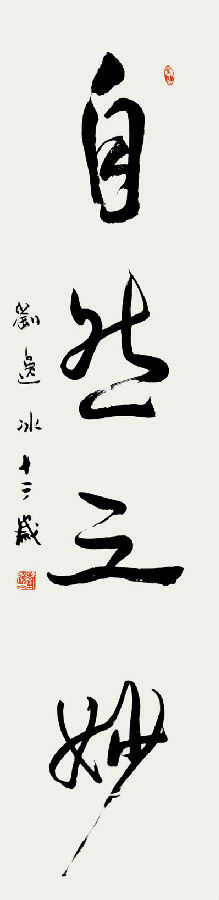 自然之妙
劉冰十三歲